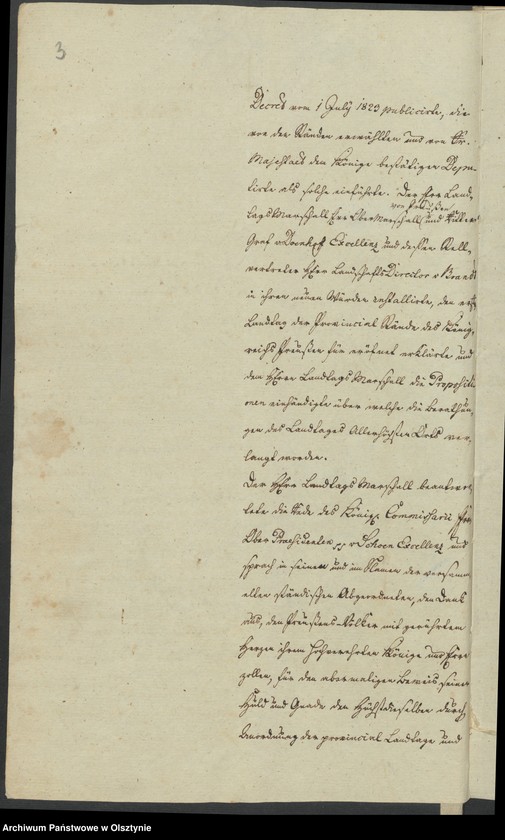 3
Decret vom 1 July 1823 publicirte, die
von den Ständen erwählten und von Sr.
Majestaet dem Könige bestätigten Depu-
tirte als solche einführte. Der Herr Land-
von Preußen
tags Marschall Herr Ober Marschall und
Graf v Doenhof Excellenz und dessen Stell-
vertreter Herr Landschafts Director v Brandt
in ihren neuen Würden installirte, den ersten
Landtag der Provincial Stände des König-
reichs Preußen für eröfnet erklärte und
dem Herrn Landtags Marschall die Propositi-
onen einhändigte über welche die Berathun-
gen des Landtages Allerhöchsten Orts ver-
langt worden.
Der Herr Landtags Marschall beantwor-
tete die Rede des Königl. Commissarii Herrn
Ober Praesidenten pp v Schoen Excellenz und
sprach in seinem und im Namen der versamm-
elten ständischen Abgeordneten, den Dank
aus, den Preußens Völker mit gerührtem
Herzen ihrem hochverehrten Könige und Herrn
zollen, für den abermaligen Beweis seiner
Huld und Gnade den Höchstdieselben durch
Anordnung der provincial Landtage und
Archiwum Państwowe w Olsztynie